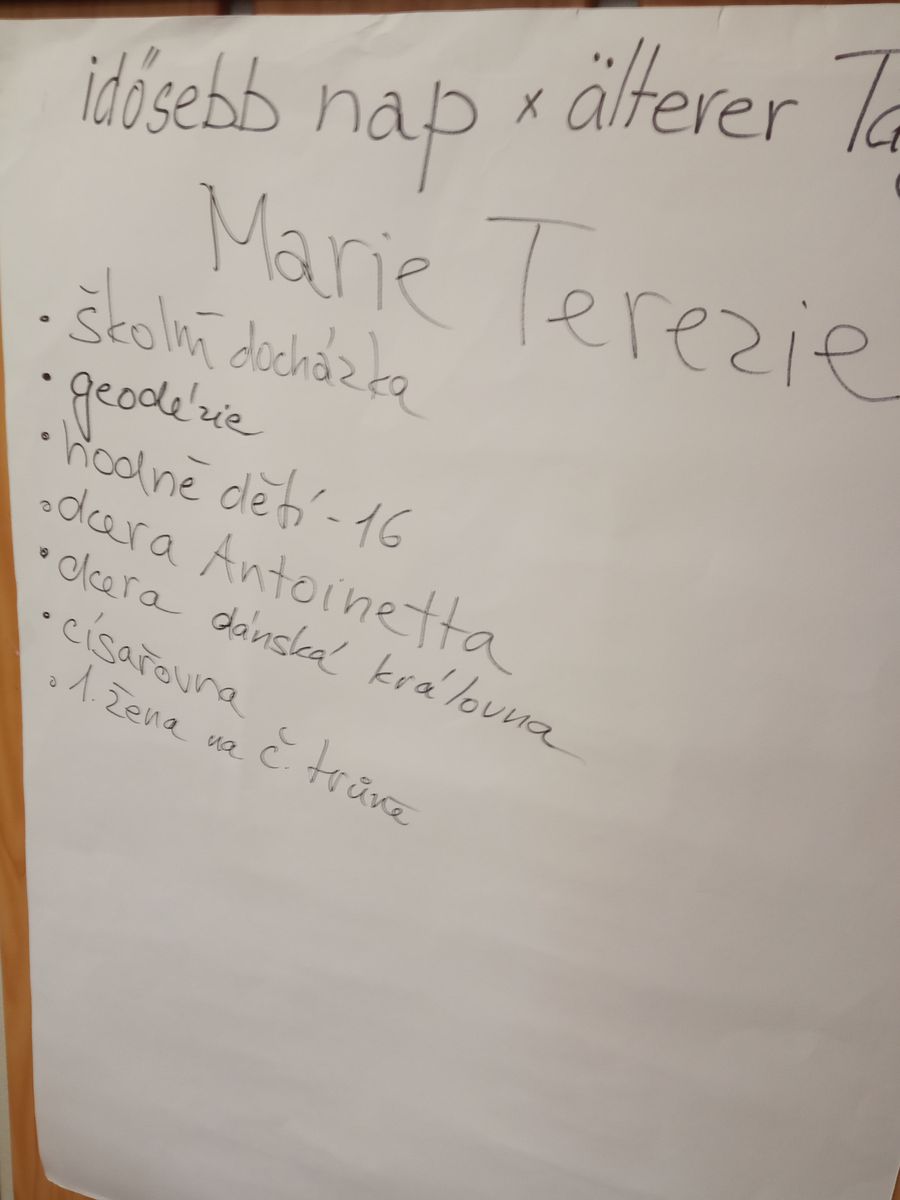 idősebb nap × älterer
Marie Terezie
• školní docházka
• geodézie
• hodně dětí - 16
• dcera Antoinetta
• dcera dánská královna
• císařovna
• 1. žena na č. trůně